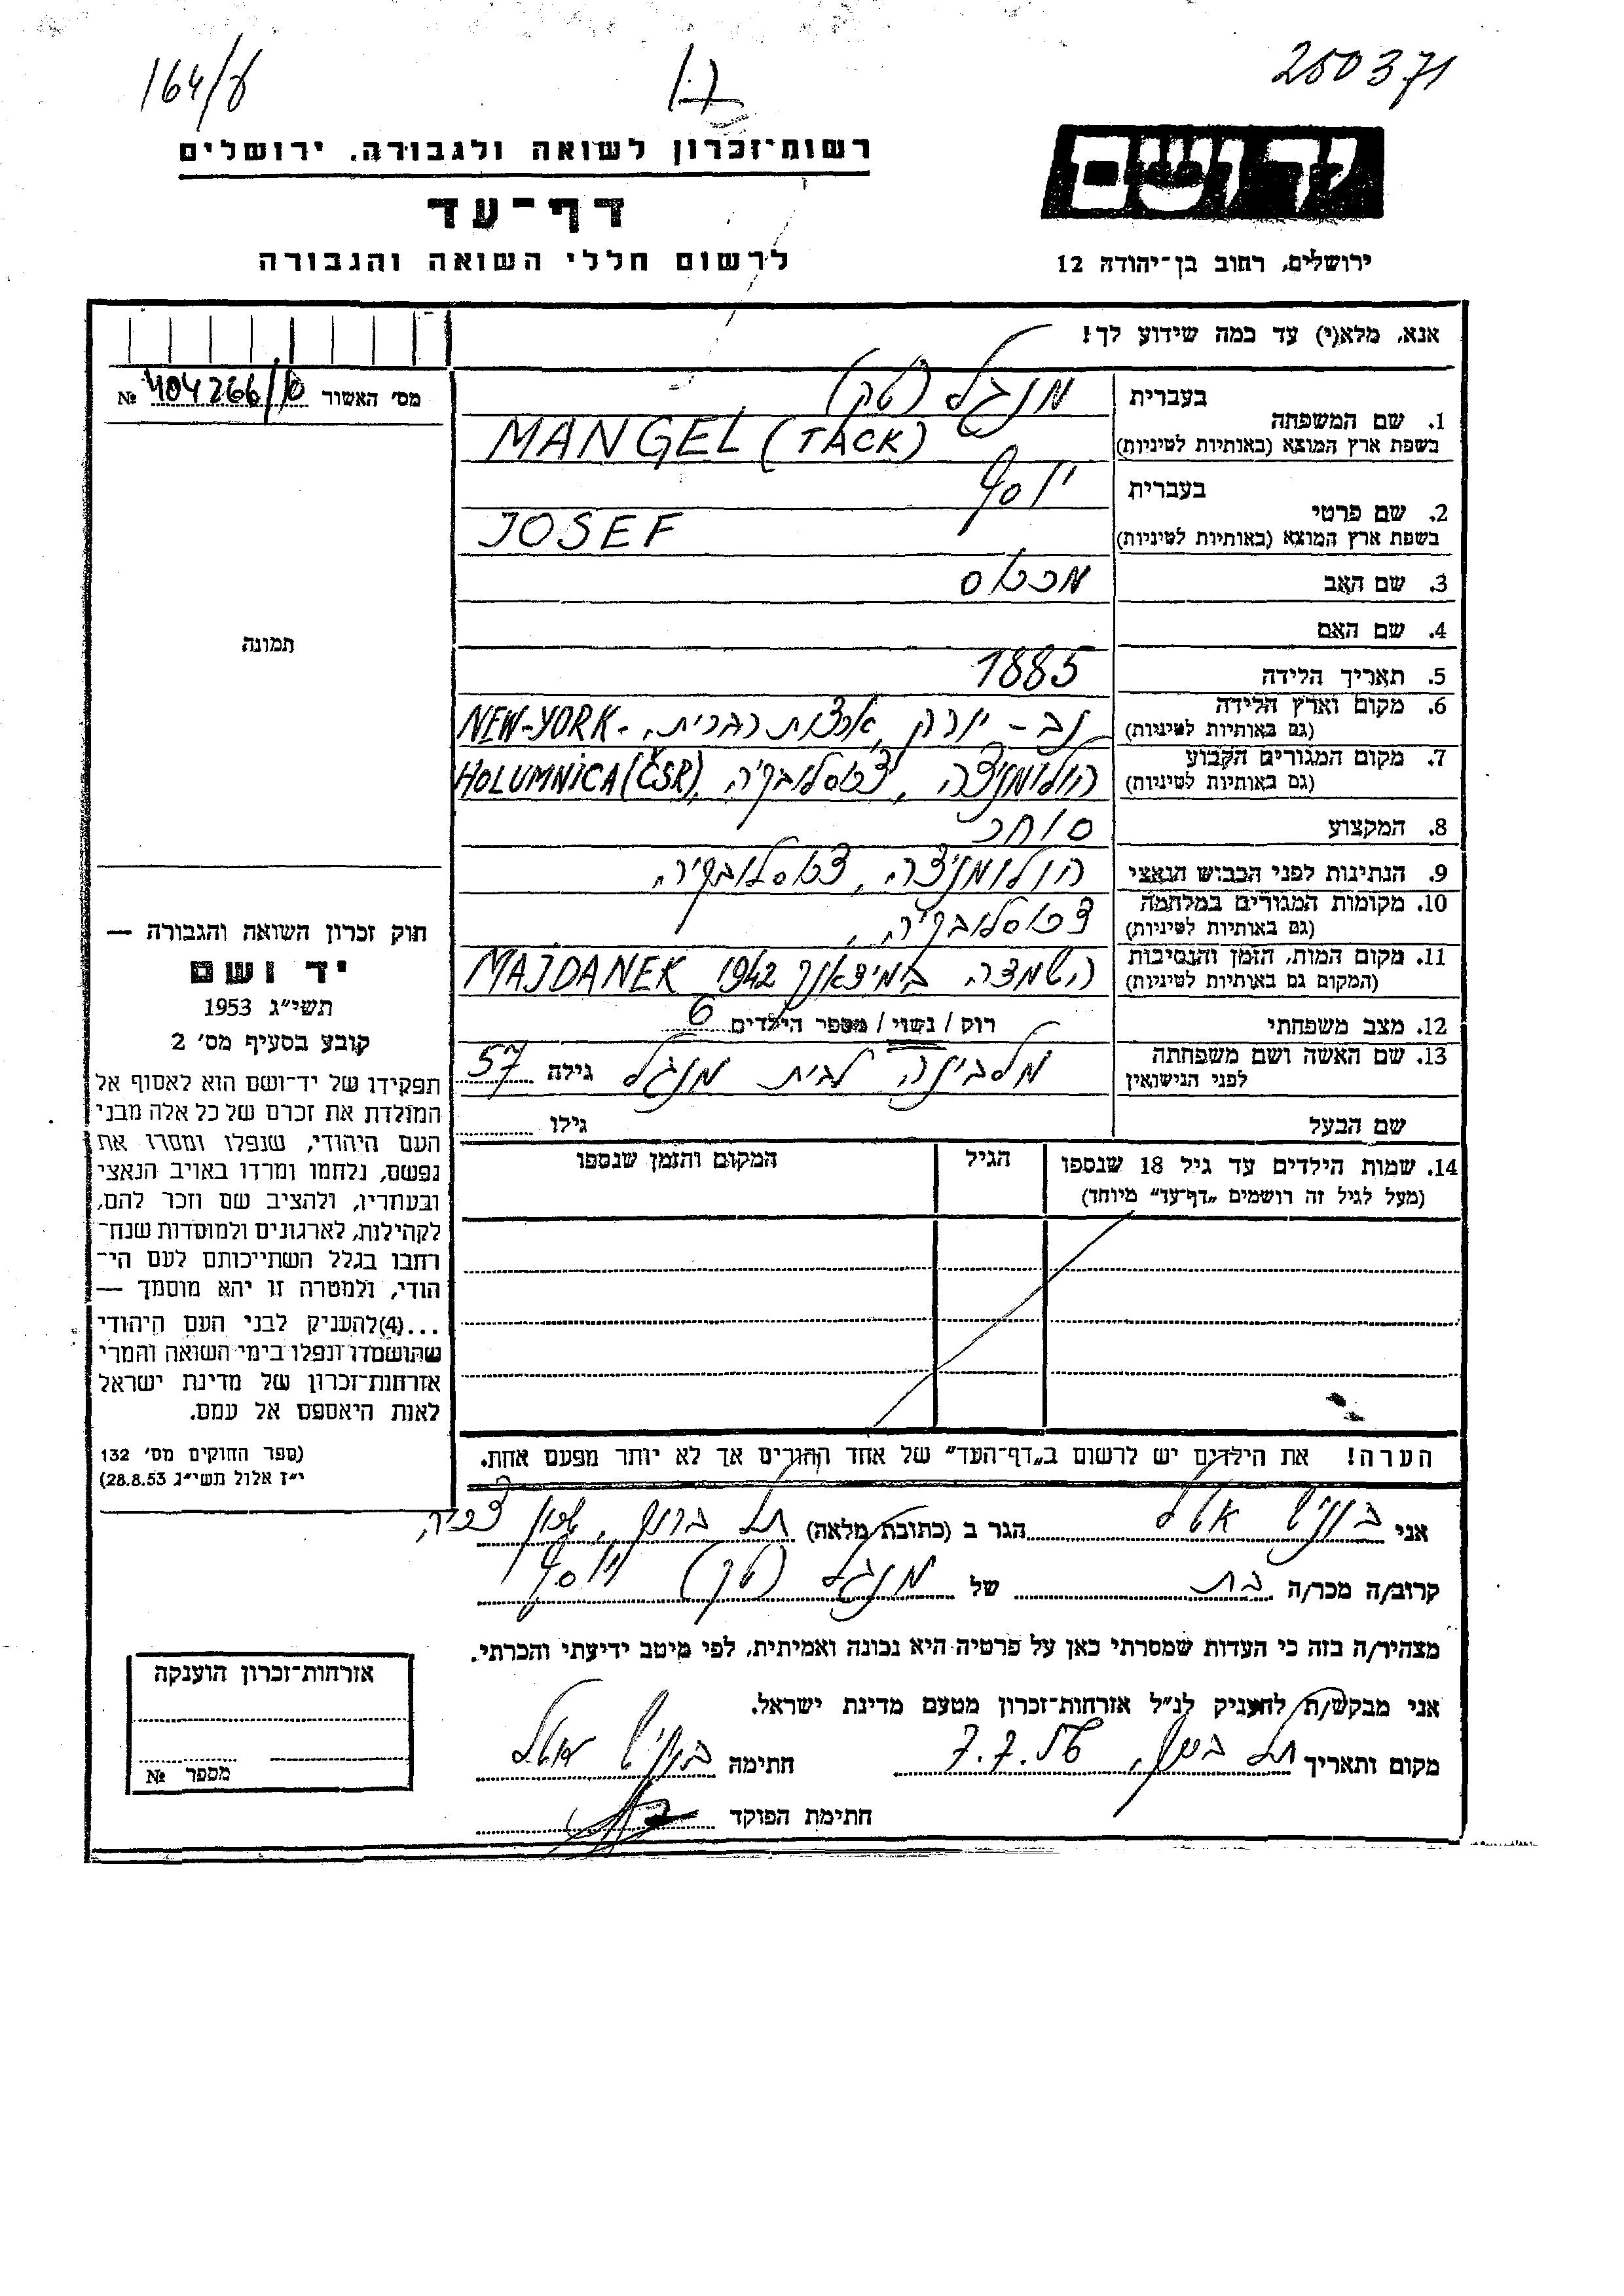 164/ד
250371
יד ושם
ירושלים, רחוב בן־יהודה 12
רשות־זכרון לשואה ולגבורה, ירושלים
דף־עד
לרשום חללי השואה והגבורה
אנא, מלא(י) עד כמה שידוע לך!
מס׳ האשור 404266/10 №
1. שם המשפחה בעברית מנגל (טק)
בשפת ארץ המוצא (באותיות לטיניות) MANGEL (TACK)
2. שם פרטי בעברית יוסף
בשפת ארץ המוצא (באותיות לטיניות) JOSEF
3. שם האב מרכוס
4. שם האם
5. תאריך הלידה 1885
6. מקום וארץ הלידה (גם באותיות לטיניות) נב-יורק, ארצות הברית. NEW-YORK
7. מקום המגורים הקבוע (גם באותיות לטיניות) הולומניצה, צ׳כוסלובקיה, HOLUMNICA (ČSR)
8. המקצוע סוחר
9. הנתינות לפני הכבוש הנאצי הולומניצה, צכוסלובקיה,
10. מקומות המגורים במלחמה (גם באותיות לטיניות) צכוסלובקיה,
11. מקום המות, הזמן והנסיבות (המקום גם באותיות לטיניות) השמדה במידאנק 1942 MAJDANEK
12. מצב משפחתי רוק / נשוי / מספר הילדים 6
13. שם האשה ושם משפחתה לפני הנישואין מלבינה לבית מנגל גילה 57
שם הבעל גילו
14. שמות הילדים עד גיל 18 שנספו (מעל לגיל זה רושמים „דף־עד״ מיוחד)
הגיל
המקום והזמן שנספו
הערה! את הילדים יש לרשום ב„דף־העד״ של אחד ההורים אך לא יותר מפעם אחת.
אני אטל הגר ב (כתובת מלאה) תל ברוך,
קרוב/ה מכר/ה בת של מנגל (טק) יוסף
מצהיר/ה בזה כי העדות שמסרתי כאן על פרטיה היא נכונה ואמיתית, לפי מיטב ידיעתי והכרתי.
אני מבקש/ת להעניק לנ״ל אזרחות־זכרון מטעם מדינת ישראל.
מקום ותאריך תל ברוך, 7.7.56 חתימה
חתימת הפוקד
תמונה
חוק זכרון השואה והגבורה —
יד ושם
תשי״ג 1953
קובע בסעיף מס׳ 2
תפקידו של יד־ושם הוא לאסוף אל
המולדת את זכרם של כל אלה מבני
העם היהודי, שנפלו ומסרו את
נפשם, נלחמו ומרדו באויב הנאצי
ובעוזריו, ולהציב שם וזכר להם,
לקהילות, לארגונים ולמוסדות שנח־
רחבו בגלל השתייכותם לעם הי־
הודי, ולמטרה זו יהא מוסמך —
...(4)להעניק לבני העם היהודי
שהושמדו ונפלו בימי השואה והמרי
אזרחות־זכרון של מדינת ישראל
לאות היאספם אל עמם.
(ספר החוקים מס׳ 132
י״ז אלול תשי״ג 28.8.53)
אזרחות־זכרון הוענקה
מספר №